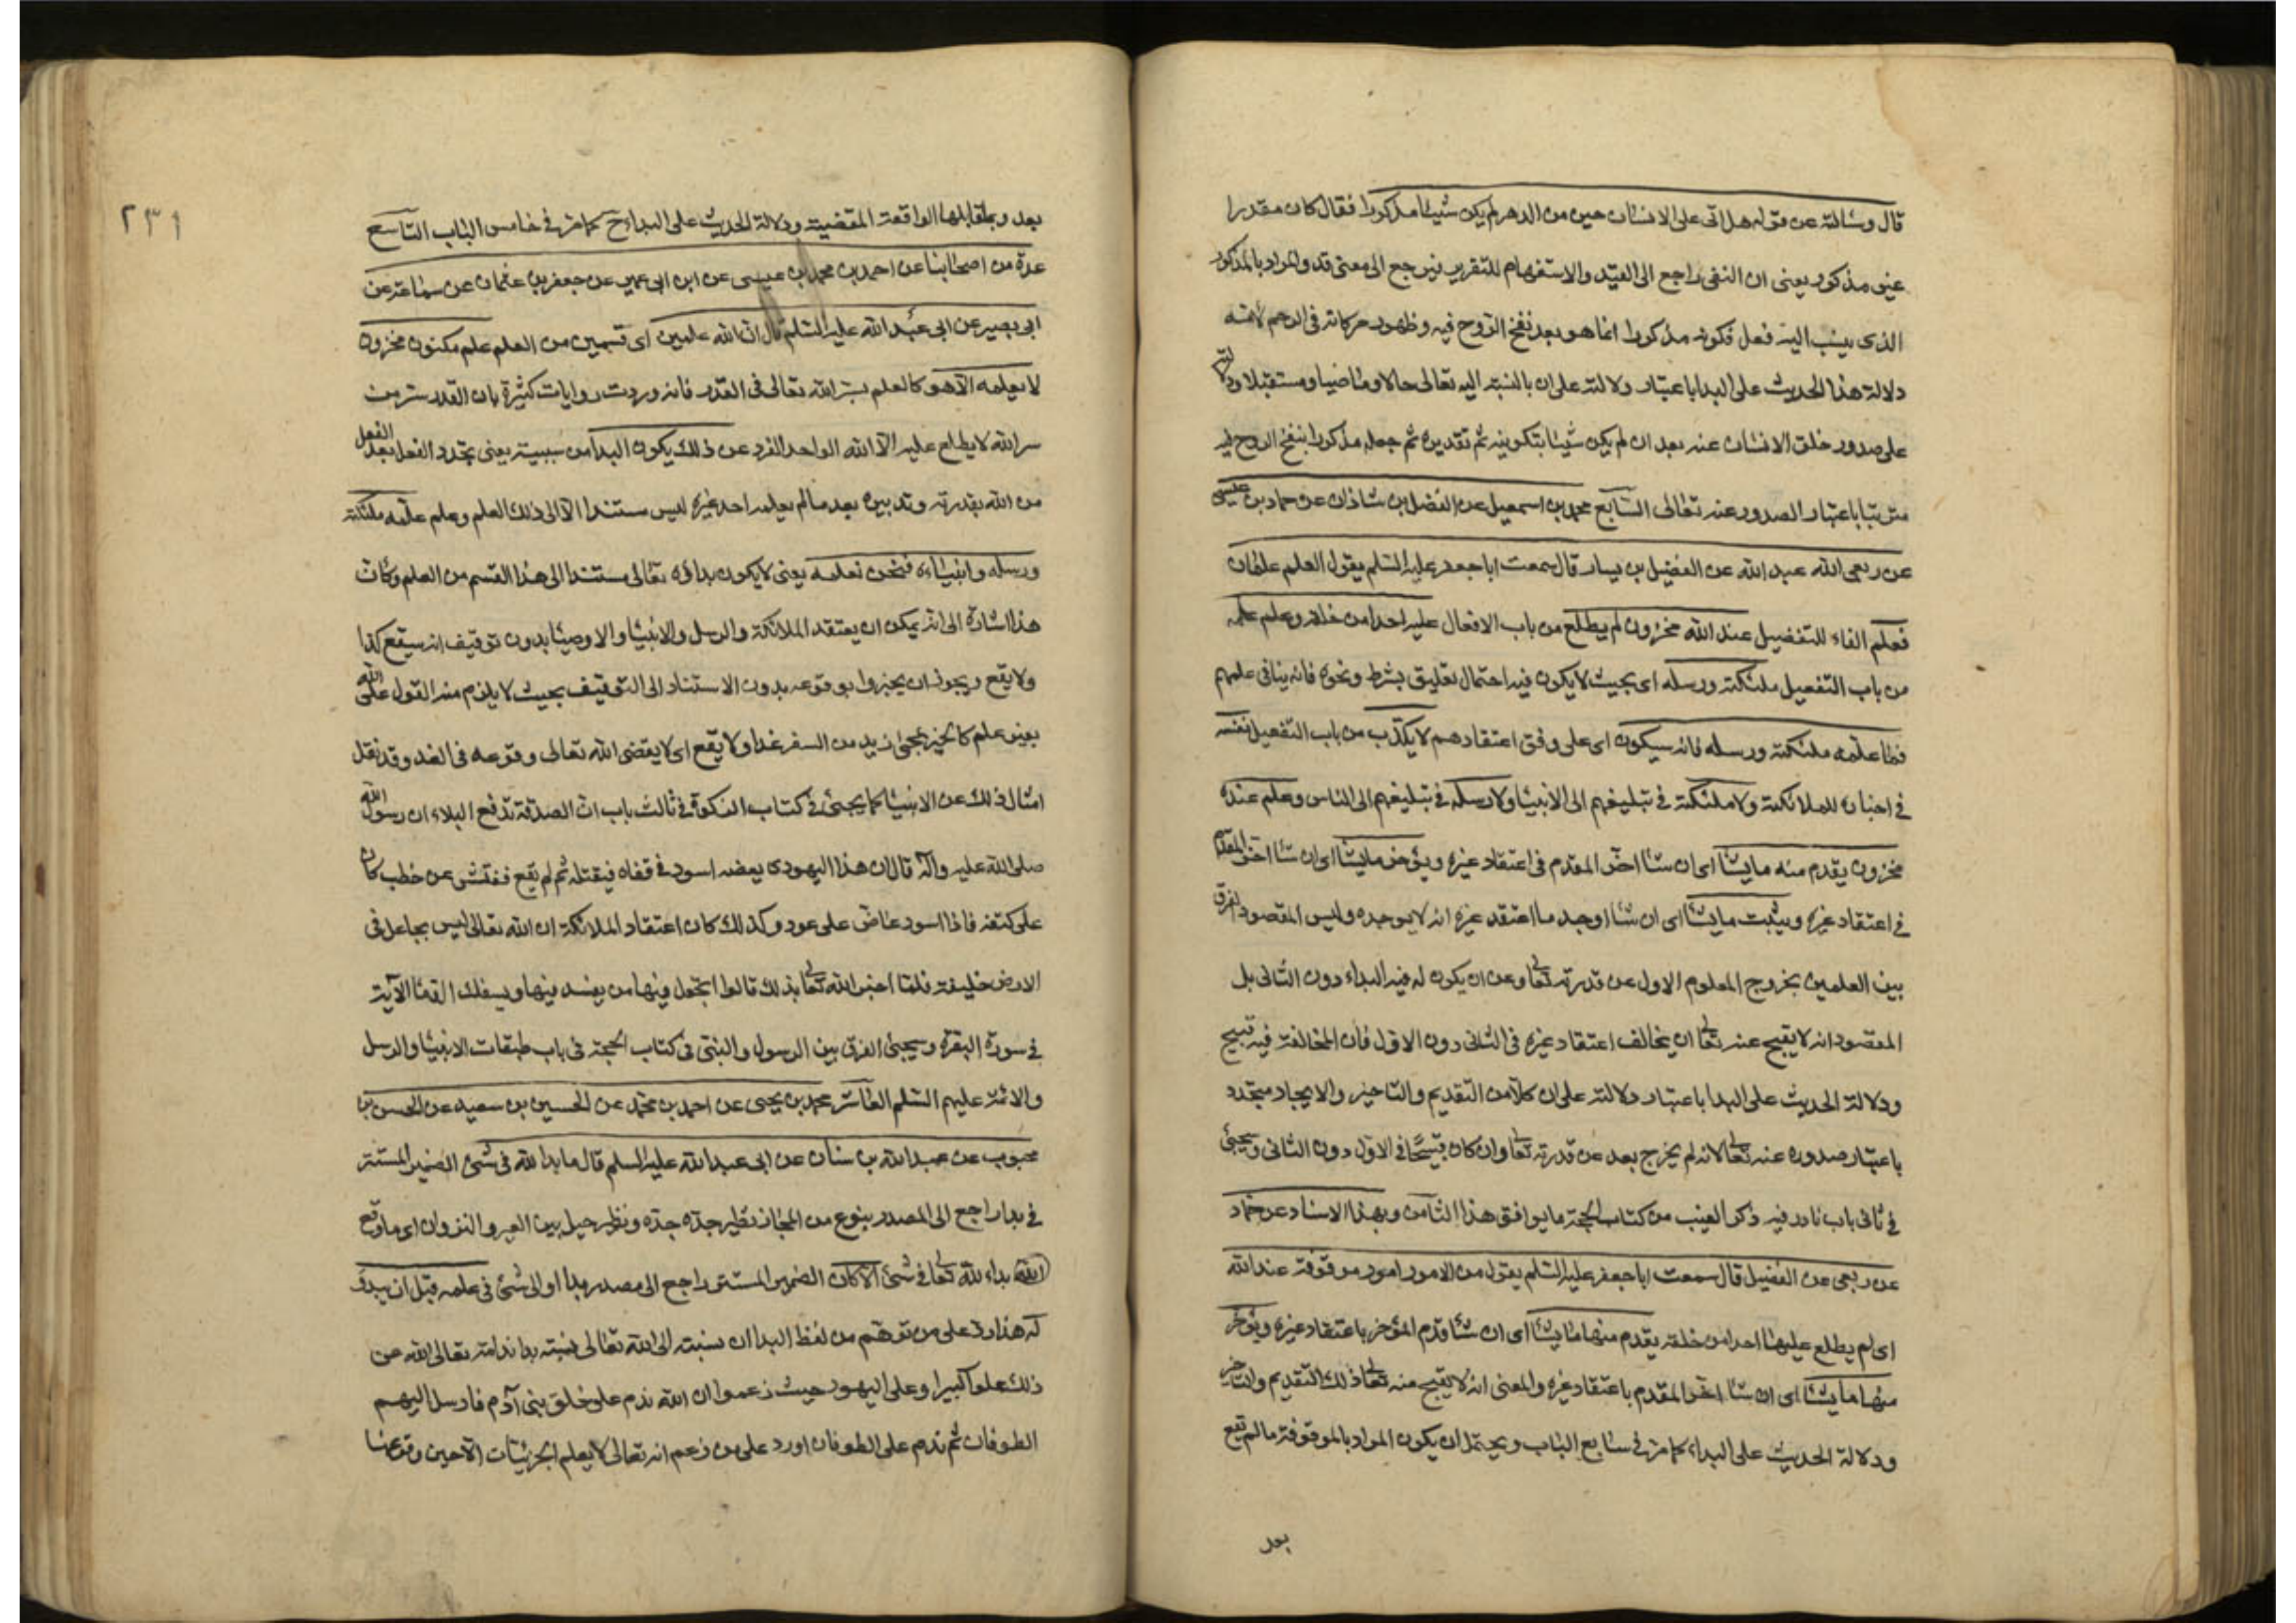 قال وسالته عن قوله هل اتى على الانسان حين من الدهر لم يكن شيئا مذكورا فقال كان مقدرا
غير مذكور يعنى ان النفى راجع الى القيد والاستفهام للتقرير فيرجع الى معنى قد والمراد بالمذكور
الذى ينسب اليه فعل فكونه مذكورا انما هو بعد نفخ الروح فيه وظهور حركاته فى الرحم لامه
دلالة هذا الحديث على البدا باعتبار دلالته على ان بالنسبة اليه تعالى حالا وماضيا ومستقبلا ودلالته
على صدور خلق الانسان عنه بعد ان لم يكن شيئا بتكوينه ثم تقديره ثم جعله مذكورا بنفخ الروح فيه
مترتبا باعتبار الصدور عنه تعالى السابع محمد بن اسمعيل عن الفضل بن شاذان عن حماد بن عيسى
عن ربعى الله عبد الله عن الفضيل بن يسار قال سمعت ابا جعفر عليه السلم يقول العلم علمان
فعلم الفاء للتفصيل عند الله مخزون لم يطلع من باب الافعال عليه احدا من خلقه وعلم علمه
من باب التفعيل ملئكته ورسله اى بحيث لا يكون فيه احتمال تعليق بشرط ونحوه فانه ينافى علمهم
فما علمه ملئكته ورسله فانه سيكون اى على وفق اعتقادهم لا يكذب من باب التفعيل نفسه
فى اخباره للملائكة ولا ملئكته فى تبليغهم الى الانبيا ولا رسله فى تبليغهم الى الناس وعلم عنده
مخزون يقدم منه ما يشا اى ان شا اخر المقدم فى اعتقاد غيره ويؤخر ما يشا اى ان شا اخر المقدم
فى اعتقاد غيره ويثبت ما يشا اى ان شا اوجد ما اعتقد غيره انه لا يوجده وليس المقصود الفرق
بين العلمين بخروج المعلوم الاول عن قدرته تعالى وعن ان يكون له فيه البداء دون الثانى بل
المقصود انه لا يقبح عنه تعالى ان يخالف اعتقاد غيره فى الثانى دون الاول فان المخالفة فيه قبيح
ودلالة الحديث على البدا باعتبار دلالته على ان كلا من التقديم والتاخير والايجاد متجدد
باعتبار صدوره عنه تعالى لانه لم يخرج بعد عن قدرته تعالى وان كان قبيحا فى الاول دون الثانى ويجيئ
فى ثانى باب نادر فيه ذكر الغيب من كتاب الحجة ما يوافق هذا الثامن وبهذا الاسناد عن حماد
عن ربعى عن الفضيل قال سمعت ابا جعفر عليه السلم يقول من الامور امور موقوفة عند الله
اى لم يطلع عليها احدا من خلقه يقدم منها ما يشا اى ان شا قدم المؤخر باعتقاد غيره ويؤخر
منها ما يشا اى ان شا اخر المقدم باعتقاد غيره والمعنى انه لا يقبح منه تعالى ذلك التقديم والتاخير
ودلالة الحديث على البداء كما مر فى سابع الباب ويحتمل ان يكون المراد بالموقوفة ما لم يقع
بعد
٢٣١
بعد وبمقابلها الواقعة المقضية ودلالة الحديث على البداء ح كما مر فى خامس الباب التاسع
عدة من اصحابنا عن احمد بن محمد بن عيسى عن ابن ابى عمير عن جعفر بن عثمان عن سماعة عن
ابى بصير عن ابى عبد الله عليه السلم قال ان الله علمين اى قسمين من العلم علم مكنون مخزون
لا يعلمه الا هو كالعلم بسر الله تعالى فى القدر فانه وردت روايات كثيرة بان القدر سر من
سر الله لا يطلع عليه الا الله الواحد الفرد عن ذلك يكون البدا من سببية يعنى تجدد الفعل بعد الفعل
من الله بقدرته وتدبيره بعد ما لم يعلمه احد غيره ليس مستندا الا الى ذلك العلم وعلم علمه ملئكته
ورسله وانبياءه فنحن نعلمه يعنى لا يكون بداؤه تعالى مستندا الى هذا القسم من العلم وكان
هذا اشارة الى انه يمكن ان يعتقد الملائكة والرسل والانبيا والاوصيا بدون توقيف انه سيقع كذا
ولا يقع ويجوز ان يخبروا بوقوعه بدون الاستناد الى التوقيف بحيث لا يلزم منه القول على الله
بغير علم كالخبر بمجئ زيد من السفر غدا ولا يقع اى لا يقضى الله تعالى وقوعه فى الغد وقد نقل
امثال ذلك عن الانبيا كما يجيئ فى كتاب الزكوة فى ثالث باب ان الصدقة تدفع البلاء ان رسول الله
صلى الله عليه وآله قال ان هذا اليهودى يعضه اسود فى قفاه فيقتله ثم لم يقع ففتش عن حطب كان
على كتفه فاذا اسود عاض على عود وكذلك كان اعتقاد الملائكة ان الله تعالى ليس بجاعل فى
الارض خليفة فلما اخبر الله تعالى بذلك قالوا اتجعل فيها من يفسد فيها ويسفك الدما الآية
فى سورة البقرة وسيجئ الفرق بين الرسول والنبى فى كتاب الحجة فى باب طبقات الانبيا والرسل
والائمة عليهم السلم العاشر محمد بن يحيى عن احمد بن محمد عن الحسين بن سعيد عن الحسن بن
محبوب عن عبد الله بن سنان عن ابى عبد الله عليه السلم قال ما بدا لله فى شئ الضمير المستتر
فى بدا راجع الى المصدر بنوع من المجاز نظير جد جده ونظير حيل بين العير والنزوان اى ما وقع
الله بداء لله تعالى فى شئ الا كان الضمير المستتر راجع الى مصدر بدا او الى شئ فى علمه قبل ان يبدو
له هذا رد على من توهم من لفظ البدا ان نسبته الى الله تعالى نسبة بدا ندامة تعالى الله عن
ذلك علوا كبيرا وعلى اليهود حيث زعموا ان الله ندم على خلق بنى آدم فارسل اليهم
الطوفان ثم ندم على الطوفان اورد على من زعم انه تعالى لا يعلم الجزئيات الا حين وقوعها